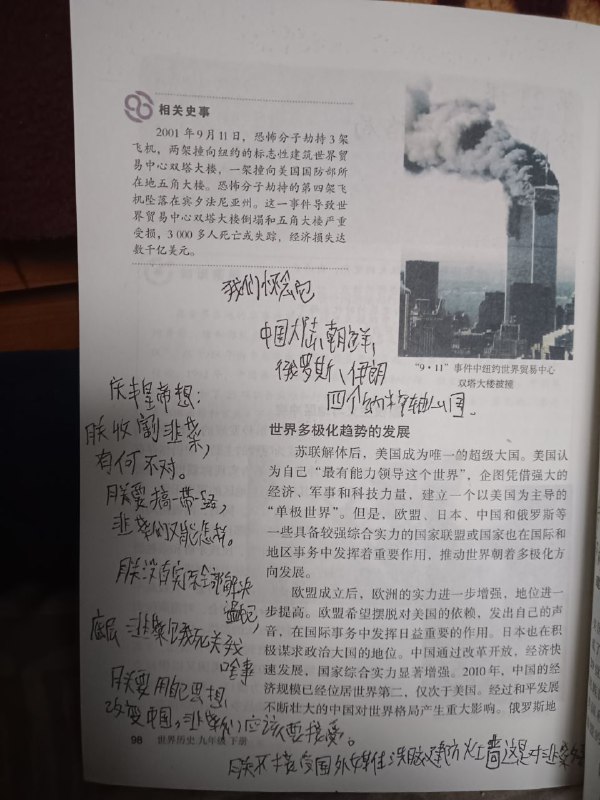 相关史事
2001 年 9 月 11 日，恐怖分子劫持 3 架
飞机，两架撞向纽约的标志性建筑世界贸
易中心双塔大楼，一架撞向美国国防部所
在地五角大楼。恐怖分子劫持的第四架飞
机坠落在宾夕法尼亚州。这一事件导致世
界贸易中心双塔大楼倒塌和五角大楼严重
受损，3 000 多人死亡或失踪，经济损失达
数千亿美元。
“9·11”事件中纽约世界贸易中心
双塔大楼被撞
我们怀念它
中国大陆、朝鲜、
俄罗斯、伊朗
四个纳粹轴心国。
庆丰皇帝想：
朕收割韭菜，
有何不对。
朕要搞一带一路，
韭菜们又能怎样。
朕没有完全解决
温饱，
底层韭菜们死关我
啥事
朕要用自己思想
改变中国，韭菜们应该要接受。
世界多极化趋势的发展
苏联解体后，美国成为唯一的超级大国。美国认
为自己“最有能力领导这个世界”，企图凭借强大的
经济、军事和科技力量，建立一个以美国为主导的
“单极世界”。但是，欧盟、日本、中国和俄罗斯等
一些具备较强综合实力的国家联盟或国家也在国际和
地区事务中发挥着重要作用，推动世界朝着多极化方
向发展。
欧盟成立后，欧洲的实力进一步增强，地位进一
步提高。欧盟希望摆脱对美国的依赖，发出自己的声
音，在国际事务中发挥日益重要的作用。日本也在积
极谋求政治大国的地位。中国通过改革开放，经济快
速发展，国家综合实力显著增强。2010 年，中国的经
济规模已经位居世界第二，仅次于美国。经过和平发展
不断壮大的中国对世界格局产生重大影响。俄罗斯地
98 世界历史 九年级 下册
朕不接受国外媒体洗脑建防火墙这是对韭菜